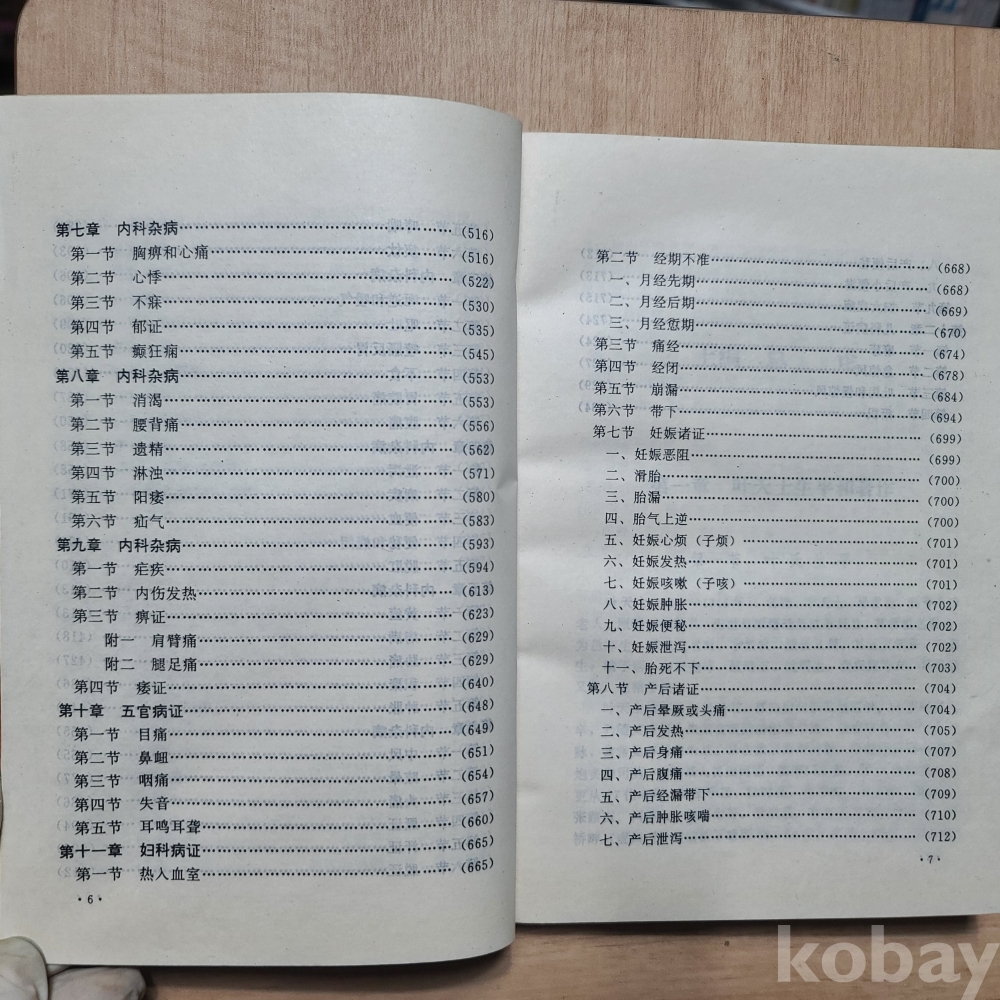 第七章 内科杂病……(516)
第一节 胸痹和心痛……(516)
第二节 心悸……(522)
第三节 不寐……(530)
第四节 郁证……(535)
第五节 癫狂痫……(545)
第八章 内科杂病……(553)
第一节 消渴……(553)
第二节 腰背痛……(556)
第三节 遗精……(562)
第四节 淋浊……(571)
第五节 阳痿……(580)
第六节 疝气……(583)
第九章 内科杂病……(593)
第一节 疟疾……(594)
第二节 内伤发热……(613)
第三节 痹证……(623)
附一 肩臂痛……(629)
附二 腿足痛……(629)
第四节 痿证……(640)
第十章 五官病证……(648)
第一节 目痛……(649)
第二节 鼻衄……(651)
第三节 咽痛……(654)
第四节 失音……(657)
第五节 耳鸣耳聋……(660)
第十一章 妇科病证……(665)
第一节 热入血室……(665)
·6·
第二节 经期不准……(668)
一、月经先期……(668)
二、月经后期……(669)
三、月经愆期……(670)
第三节 痛经……(674)
第四节 经闭……(678)
第五节 崩漏……(684)
第六节 带下……(694)
第七节 妊娠诸证……(699)
一、妊娠恶阻……(699)
二、滑胎……(700)
三、胎漏……(700)
四、胎气上逆……(700)
五、妊娠心烦（子烦）……(701)
六、妊娠发热……(701)
七、妊娠咳嗽（子咳）……(701)
八、妊娠肿胀……(702)
九、妊娠便秘……(702)
十、妊娠泄泻……(702)
十一、胎死不下……(703)
第八节 产后诸证……(704)
一、产后晕厥或头痛……(704)
二、产后发热……(705)
三、产后身痛……(707)
四、产后腹痛……(708)
五、产后经漏带下……(709)
六、产后肿胀咳喘……(710)
七、产后泄泻……(712)
·7·
kobay